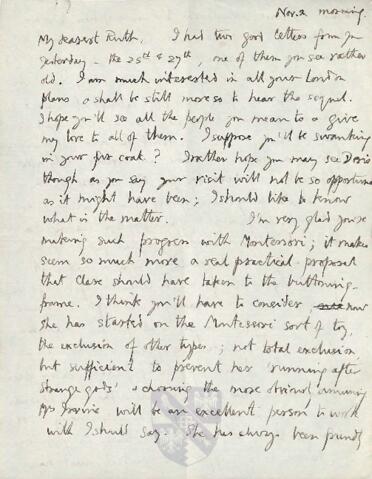 Nov. 2 morning.
My dearest Ruth, I had two good letters from you
yesterday – the 25th & 27th, one of them you see rather
old. I am much interested in all your London
plans & shall be still more so to hear the sequel.
I hope you'll see all the people you mean to & give
my love to all of them. I suppose you'll be swanking
in your fur coat? I rather hope you may see Doris
though as you say your visit will not be so opportune
as it might have been; I should like to know
what is the matter. I'm very glad you're
making such progress with Montessori; it makes
seem so much more a real practical proposal
that Clare should have taken to the buttoning-
frame. I think you'll have to consider, now
she has started on the Montessori sort of toy,
the exclusion of other types; not total exclusion
but sufficient to prevent her 'running after
strange gods' & choosing the more obvious amusing
Mrs Irvine will be an excellent person to work
with I should say. She has always been friendly